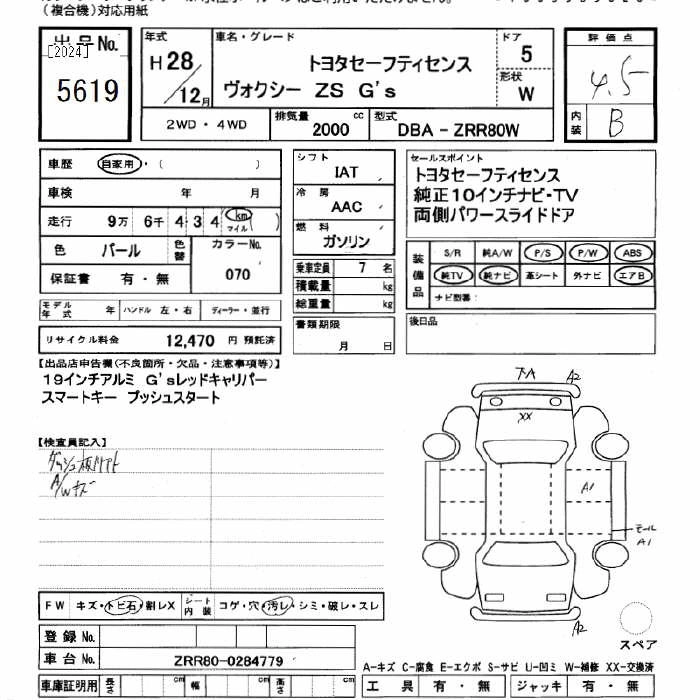 （複合機）対応用紙
出品No.
[2024]
5619
年式
H28/12月
車名・グレード
トヨタセーフティセンス
ヴォクシー ZS G's
ドア
5
形状
W
評価点
4.5
内装
B
2WD・4WD
排気量
2000 cc
型式
DBA - ZRR80W
車歴 自家用・( )
車検 年 月
走行 9万 6千 4 3 4 km マイル ( )
色 パール 色替
カラーNo.
070
保証書 有・無
モデル年式 年 ハンドル 左・右 ディーラー・並行
リサイクル料金 12,470 円 預託済
シフト
IAT
冷房
AAC
燃料
ガソリン
乗車定員 7 名
積載量 kg
総重量 kg
書類期限
月 日
セールスポイント
トヨタセーフティセンス
純正10インチナビ・TV
両側パワースライドドア
装備品
S/R 純A/W P/S P/W ABS
純TV 純ナビ 革シート 外ナビ エアB
ナビ型番：
後日品
【出品店申告欄(不良箇所・欠品・注意事項等)】
19インチアルミ G'sレッドキャリパー
スマートキー プッシュスタート
【検査員記入】
A/Wキズ
下A A2
XX
A1
モール
A1
A2
スペア
FW キズ・トビ石・割レX シート内装 コゲ・穴・汚レ・シミ・破レ・スレ
登録No.
車台No. ZRR80-0284779
車庫証明用 長さ cm 幅 cm 高さ cm
A-キズ C-腐食 E-エクボ S-サビ U-凹ミ W-補修 XX-交換済
工具 有・無 ジャッキ 有・無